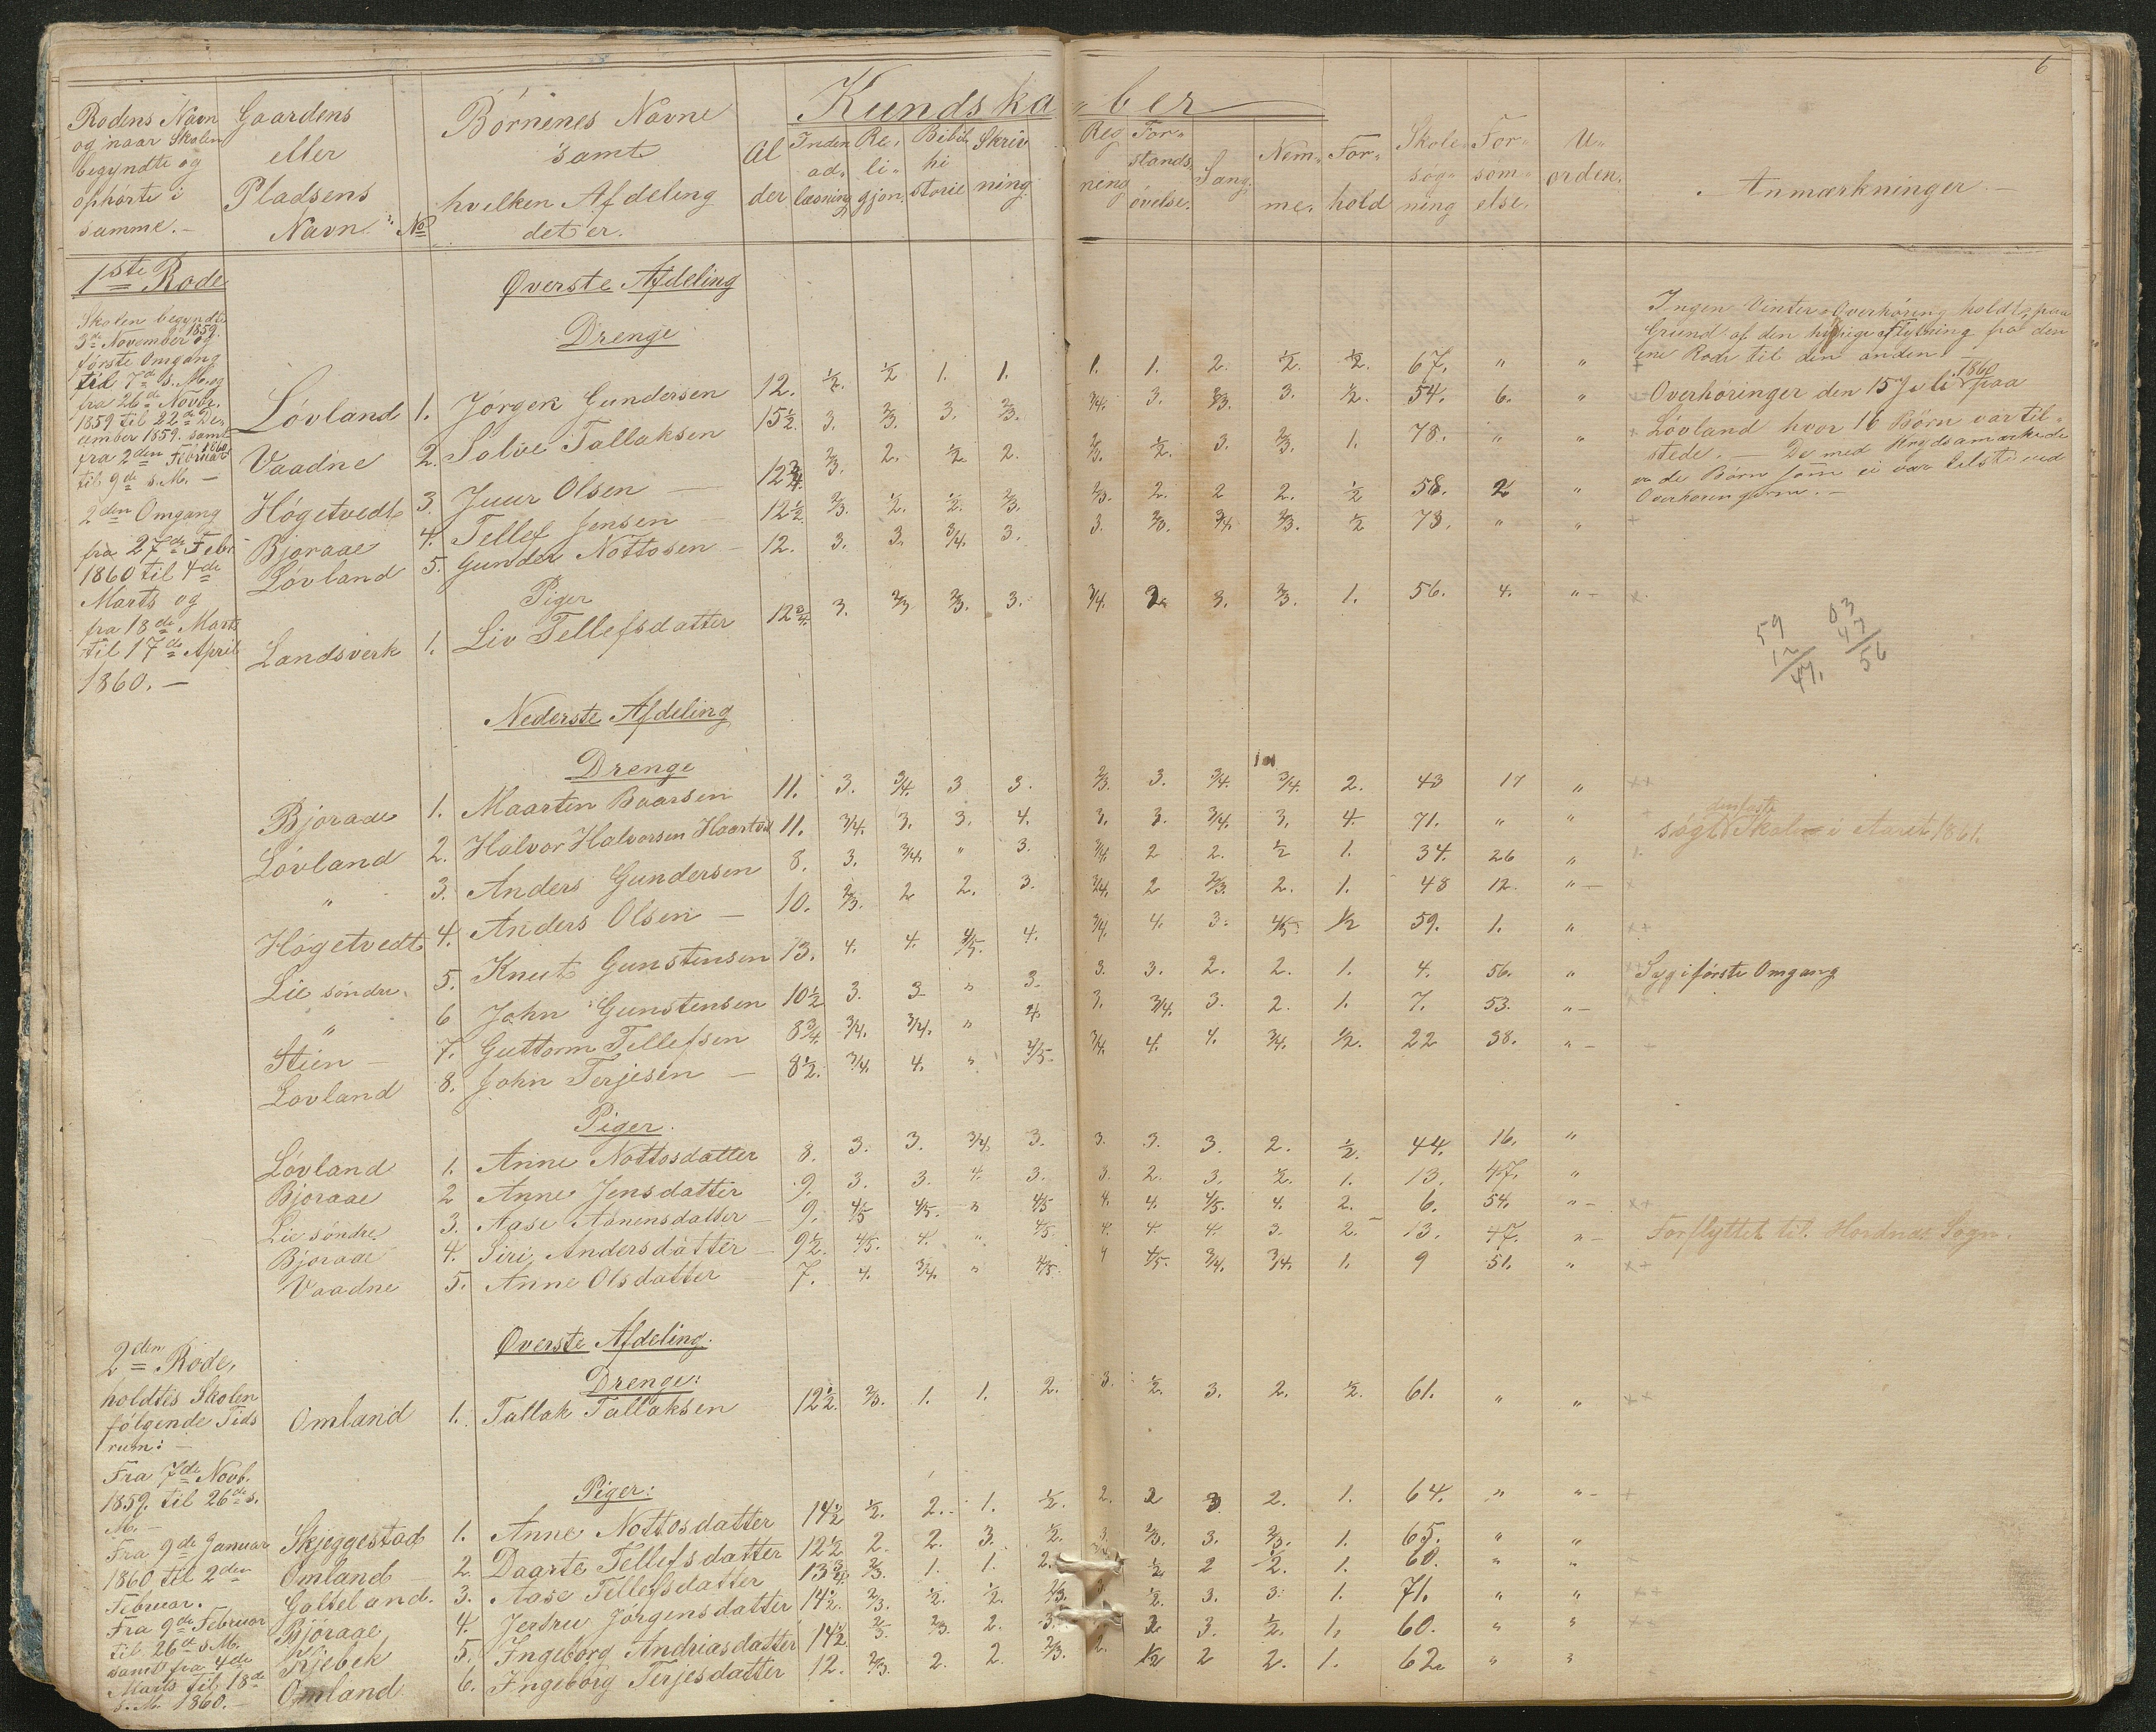 6
Kundskaber
Rodens Navn og naar Skolen begyndte og ophørte i samme. —
Gaardens eller Pladsens Navn
No
Børnenes Navne samt hvilken Afdeling det er.
Alder
Indenadlæsning
Religjon
Bibelhistorie
Skrivning
Regning
Forstandsøvelse.
Sang.
Nemme.
Forhold
Skolesøgning
Forsømmelse.
Uorden.
Anmærkninger. —
1ste Rode
Skolen begyndte
3de November 1859. og
første Omgang
til 7de s. M. og
fra 26de Novbr.
1859 til 22de De-
cember 1859. samt
fra 2den Februar 1860
til 9de s. M. —
2den Omgang
fra 27de Febr.
1860 til 4de
Marts og
fra 18de Marts
til 17de April
1860. —
Øverste Afdeling
Drenge
Løvland 1. Jørgen Gundersen 12. ½. ½ 1. 1. 1. 1. 2. ½. ½. 67. " "
Vaadne 2. Sølve Tallaksen 15½. 3. ⅔. 3. ⅔. ¾. 3. ⅔. 3. ½. 54. 6. "
Høgetvedt 3. Juur Olsen — 12¾. ⅔. 2. ½. 2. ⅔. ½. 3. ⅔. 1. 78. " "
Bjoraae 4. Tellef Jensen — 12½. ⅔. ½. ½. ⅔. ⅔. 2. 2 2. ½ 58. 2 "
Løvland 5. Gunder Nottosen — 12. 3. 3. ¾. 3. 3. ⅔. ¾. ⅔. ½ 73. " "
Piger
Landsverk 1. Liv Tellefsdatter 12¾. 3. ⅔ ⅔. 3. ¾. 2 3. ⅔. 1. 56. 4. " —
Ingen Vinter-Overhøring holdt, paa
Grund af den hyppige Flytning fra den
ene Rode til den anden. —
Overhøringer den 15 Juli 1860 paa
Løvland hvor 16 Børn var til-
stede. — De med Krydsamærkede
er de Børn som ei var tilstede ved
Overhøringerne. —
59
12
47.
03
47
56
Nederste Afdeling
Drenge
Bjoraae 1. Maarten Baarsen 11. 3. ¾. 3 3. ⅔. 3. ¾. ¾. 2. 43 17 "
Løvland 2. Halvor Halvorsen 11. ¾. 3. 3. 4. 3. 3. ¾. 3. 4. 71. " "
" 3. Anders Gundersen 8. 3. ¾. " 3. ¾. 2 2. ½ 1. 34. 26 "
Høgetvedt 4. Anders Olsen — 10. ⅔. 2 2. 3. ¾. 2 ⅔. 2. 1. 48 12. " —
Lie søndre 5. Knut Gunstensen 13. 4. 4. ⅘. 4. ¾. 4. 3. ⅘. ½ 59. 1. "
" 6 John Gunstensen 10½ 3. 3 " 3. 3. 3. 2. 2. 1. 4. 56. " Syg i første Omgang
Stien — 7. Guttorm Tellefsen 8¾. ¾. ¾. " 4. 3. ¾. 3. 2. 1. 7. 53. " —
Løvland 8. John Terjesen — 8½. ¾. 4. " ⅘. ¾. 4. 4. ¾. ½. 22 38. " —
søgt Skolen i Aaret 1861.
Piger.
Løvland 1. Anne Nottosdatter 8. 3. 3. ¾. 3. 3. 3. 3. 2. ½. 44. 16. "
Bjoraae 2 Anne Jensdatter 9. 3. 3. 4. 3. 3. 2. 3. ½. 1. 13. 47. "
Lie søndre 3. Aase Aanensdatter — 9. ⅘ ⅘. " ⅘ 4. 4. ⅘. 4. 2. 6. 54. " —
Bjoraae 4. Siri Andersdatter — 9½. ⅘. 4. " ⅘. 4. 4. 4. 3. 2. 13. 47. " — Forflyttet til Sogn.
Vaadne 5. Anne Olsdatter 7. 4. ¾. " ⅘. 4 ⅘. ¾. ¾. 1. 9 51. "
2den Rode,
holdtes Skolen
følgende Tids
rum: —
Fra 7de Novb.
1859. til 26de s.
M. —
Fra 9de Januar
1860 til 2den
Februar.
Fra 9de Februar
til 26de s. M.
samt fra 4de
Marts til 18de
s. M. 1860. —
Øverste Afdeling.
Drenge:
Omland 1. Tallak Tallaksen 12½. ⅔. 1. 1. 2. 3. ½. 3. 2. ½. 61. " "
Piger:
Skjeggestad 1. Anne Nottosdatter 14½ ½. 2. 1. ½. 2. 2 3 2. 1. 64. " " —
Omland 2. Daarte Tellefsdatter 12½ 2. 2. 3. ½. 3. ⅔. 3. ⅔. 1. 65. " "
Galteland. 3. Aase Tellefsdatter 13¾. ⅔. 1. 1. 2. ½ 2 ½. 1. 60. " "
Bjoraae 4. Jertru Jørgensdatter 14½. ⅔. ½. ½. ⅔. 3. ½. 3. 3. 1. 71. " "
Kjebek 5. Ingeborg Andriasdatter 14½ ⅔ ⅔. 2. 3. 2 3. ½. 1. 60. " "
Omland 6. Ingeborg Terjesdatter 12. ⅔. 2. 2. ⅔. 2. ½ 2 2. 1. 62 " "